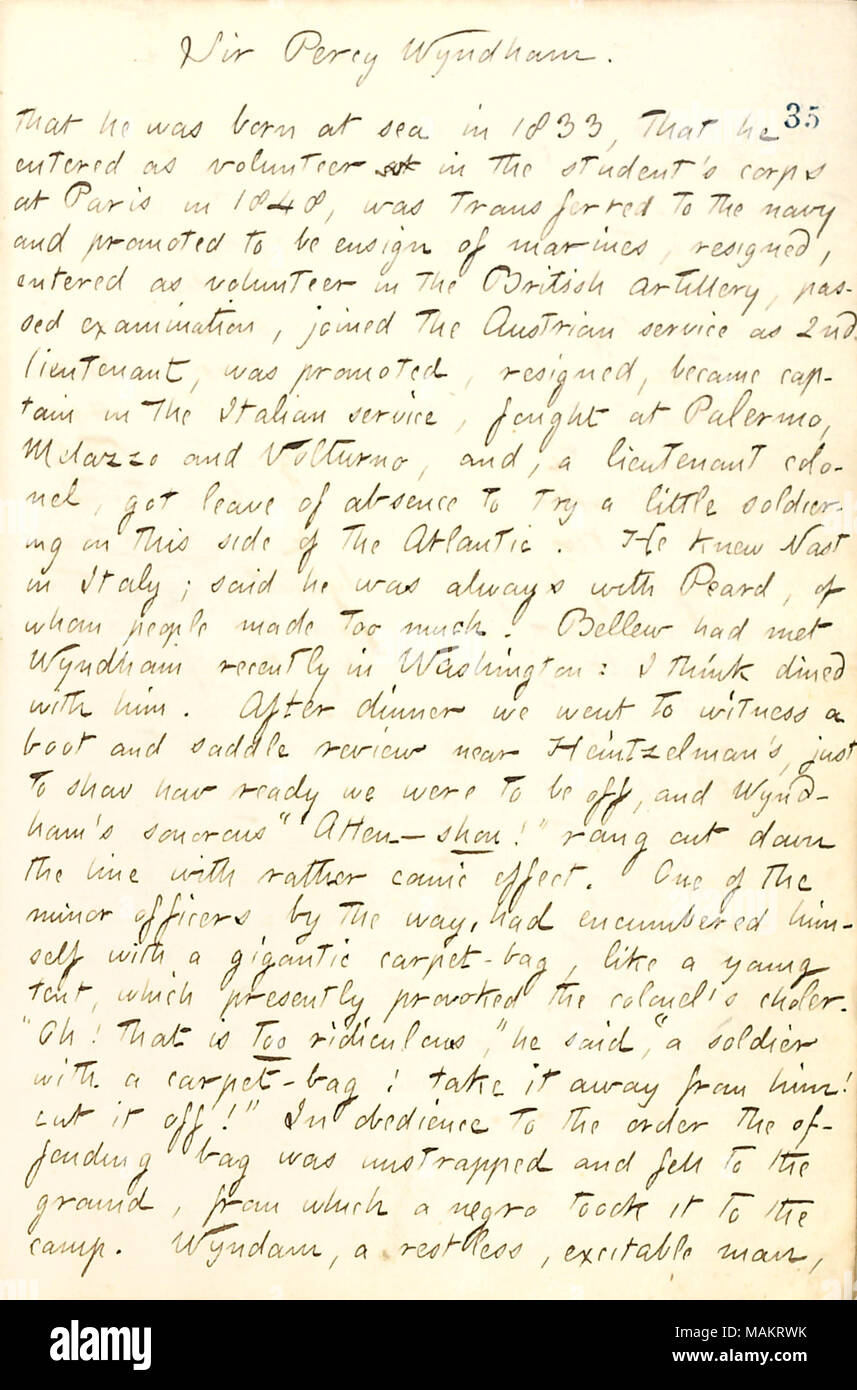 Sir Percy Wyndham.
35
that he was born at sea in 1833, that he
entered as volunteer in the student's corps
at Paris in 1848, was transferred to the navy
and promoted to be ensign of marines, resigned,
entered as volunteer in the British artillery, pas-
sed examination, joined the Austrian service as 2nd
lieutenant, was promoted, resigned, became cap-
tain in the Italian service, fought at Palermo,
Melazzo and Volturno, and, a lieutenant colo-
nel, got leave of absence to try a little soldier-
ing on this side of the Atlantic. He knew Nast
in Italy; said he was always with Peard, of
whom people made too much. Bellew had met
Wyndham recently in Washington: I think dined
with him. After dinner we went to witness a
boot and saddle review near Heintzelman's, just
to show how ready we were to be off, and Wynd-
ham's sonorous "Atten—shon!" rang out down
the line with rather comic effect. One of the
minor officers by the way, had encumbered him-
self with a gigantic carpet-bag, like a young
tent, which presently provoked the colonel's choler.
"Oh! that is too ridiculous," he said, "a soldier
with a carpet-bag! take it away from him!
cut it off!" In obedience to the order the of-
fending bag was unstrapped and fell to the
ground, from which a negro toock it to the
camp. Wyndam, a restless, excitable man,
alamy
Image ID: MAKRWK
www.alamy.com